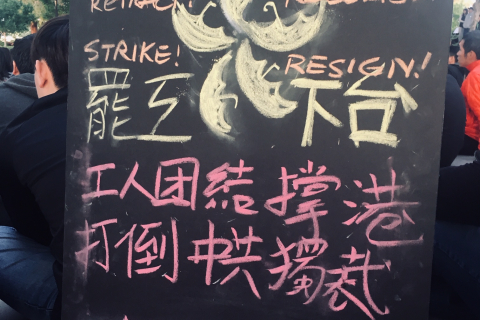 RETRACT!
STRIKE! RESIGN!
罷工 下台
工人团結撐港
打倒中共獨裁